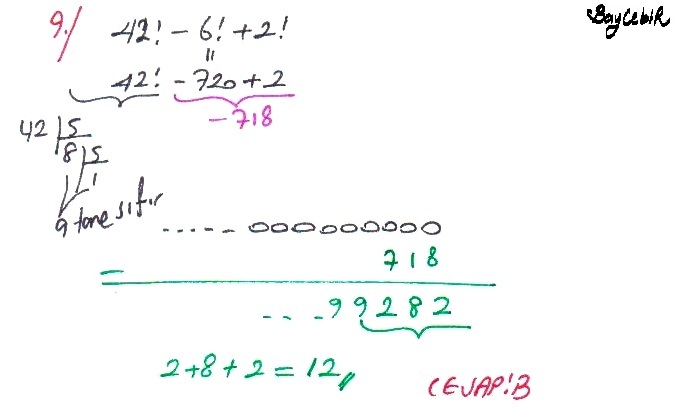 BayCebiR
9.) 42! - 6! + 2!
=
42! - 720 + 2
-718
42 | 5
8 | 5
1
9 tane sıfır
..... 000000000
718
-
... 99282
2+8+2 = 12,,
CEVAP: B